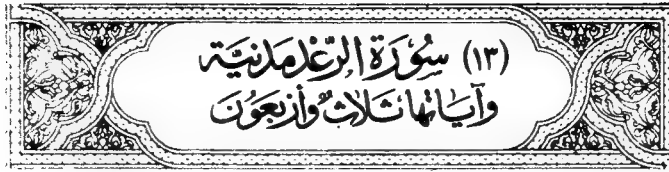 (١٣) سُورَة الرّعْد مَدنيَّة
وَآيَاتها ثَلاثٌ وَأربَعُونَ